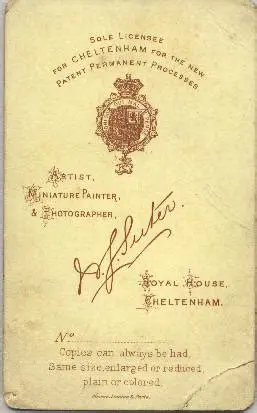 SOLE LICENSEE
FOR CHELTENHAM FOR THE NEW
PATENT PERMANENT PROCESSES.
ARTIST,
MINIATURE PAINTER,
& PHOTOGRAPHER,
ROYAL HOUSE,
CHELTENHAM.
No
Copies can always be had,
Same size, enlarged or reduced,
plain or colored.